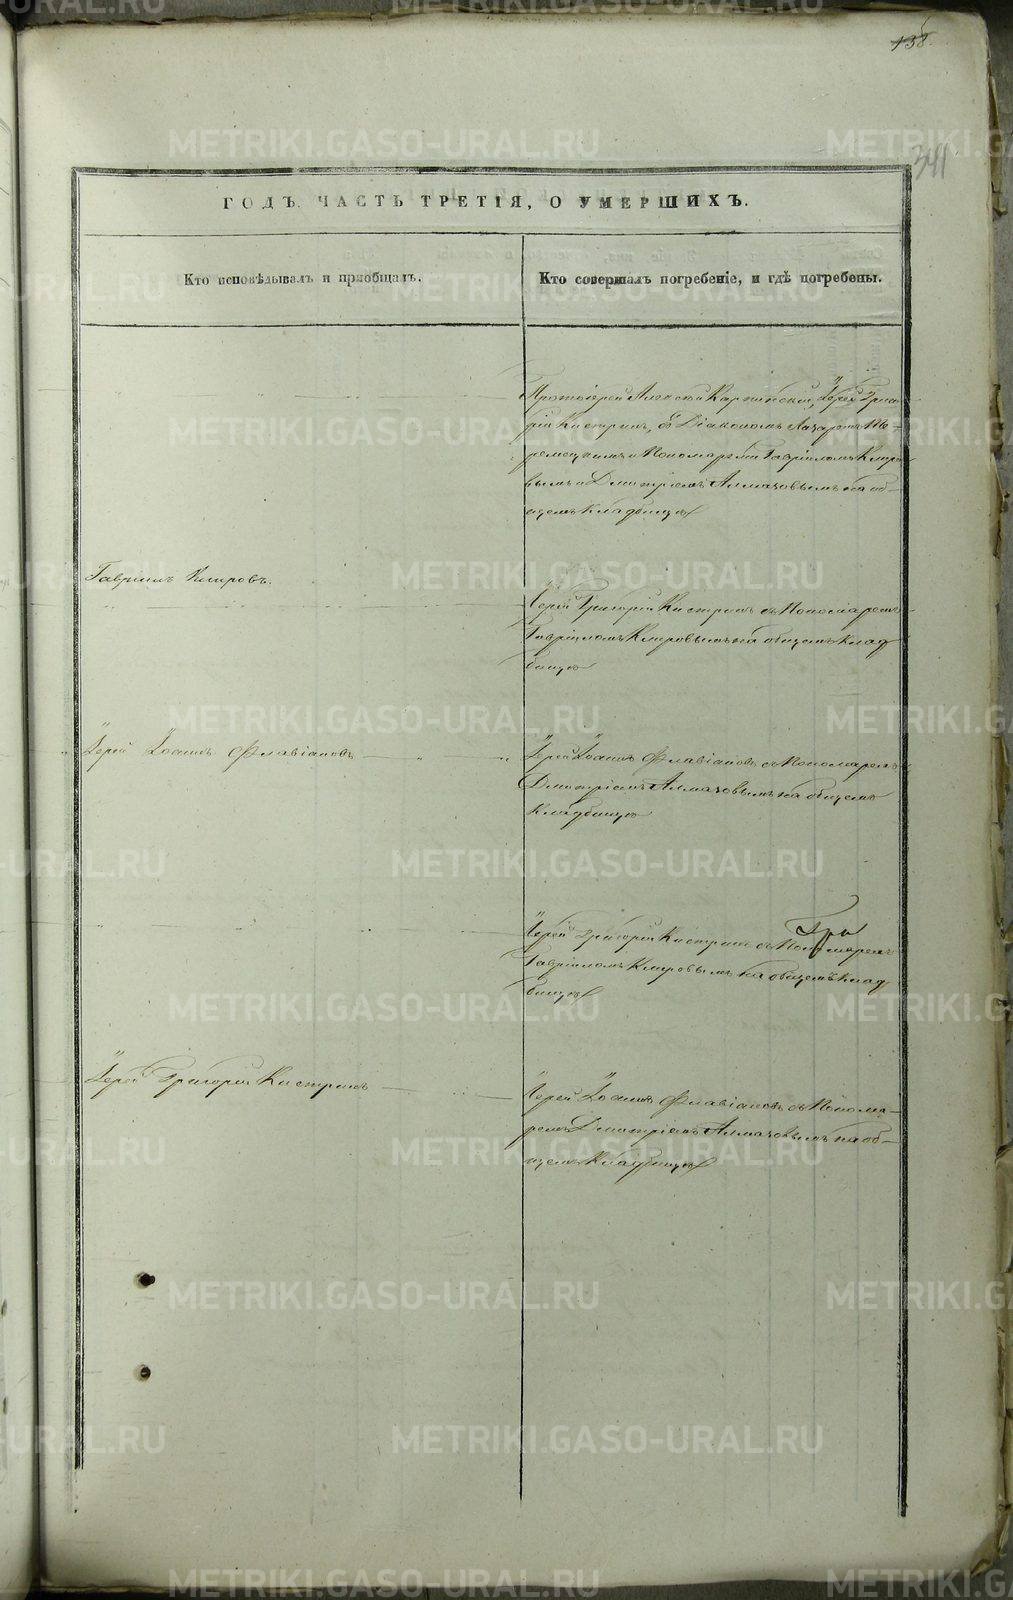 138.
341
ГОДЪ. ЧАСТЬ ТРЕТІЯ, О УМЕРШИХЪ.
Кто исповѣдывалъ и пріобщалъ.
Кто совершалъ погребеніе, и гдѣ погребены.
Протоіерей Алексѣй Карпинскій, Іерей Григо-
рій Кистринъ, съ Діакономъ Лазаремъ
и Пономарями Гавріиломъ Кипро-
вымъ и Дмитріемъ Алмазовымъ на об-
щемъ кладбищѣ
Гавріилъ Кипровъ.
Іерей Григорій Кистринъ съ Пономаремъ
Гавріиломъ Кипровымъ на общемъ клад
бищѣ
Іерей Іоаннъ Флавіановъ
Іерей Іоаннъ Флавіановъ съ Пономаремъ
Дмитріемъ Алмазовымъ на общемъ
кладбищѣ
Іерей Григорій Кистринъ съ Пономаремъ
Гавріиломъ Кипровымъ на общемъ клад
бищѣ
Іерей Григорій Кистринъ
Іерей Іоаннъ Флавіановъ съ Понома-
ремъ Дмитріемъ Алмазовымъ на об-
щемъ кладбищѣ
METRIKI.GASO-URAL.RU